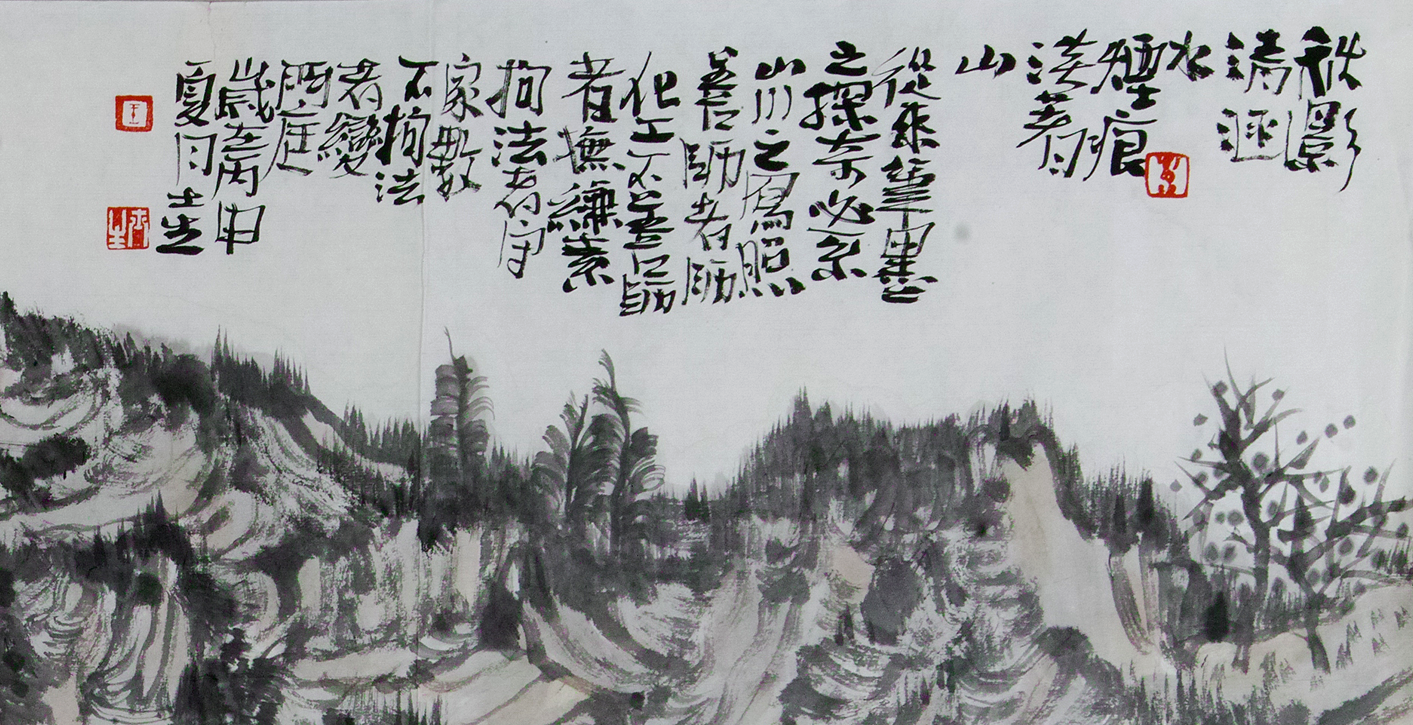 秋影
清涵
水
煙痕
淡著
山
從來筆墨
之探奇必系
山川之寫照
善師者師
化工不善師
者撫縑素
拘法者守
家數
不拘法
者變
門庭
歲在丙申
夏月士生